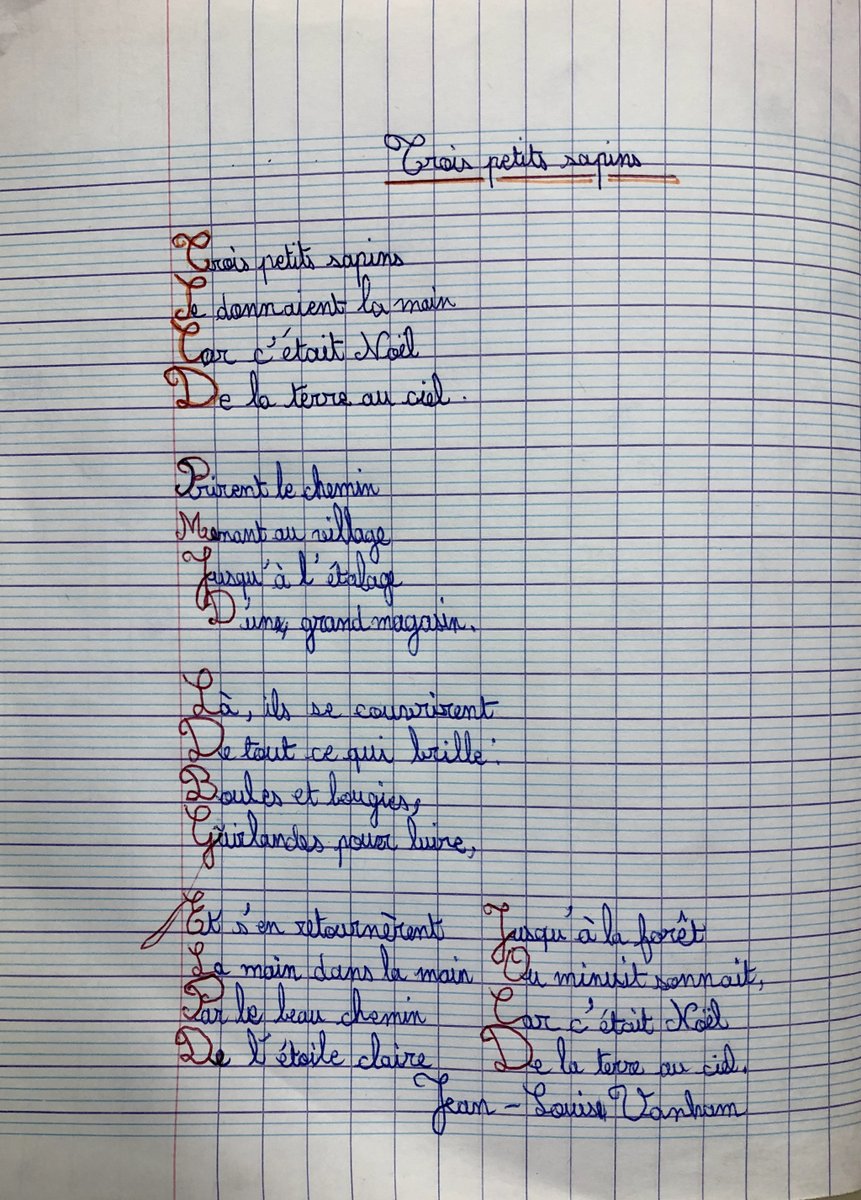 Trois petits sapins
Trois petits sapins
Se donnaient la main
Car c'était Noël
De la terre au ciel.
Prirent le chemin
Menant au village
Jusqu'à l'étalage
D'une grand magasin.
Là, ils se couvrirent
De tout ce qui brille :
Boules et bougies,
Guirlandes pouer luire,
Et s'en retournèrent
La main dans la main
Par le beau chemin
De l'étoile claire
Jusqu'à la forêt
Ou minuit sonnait,
Car c'était Noël
De la terre au ciel.
Jean-Louise Vanham